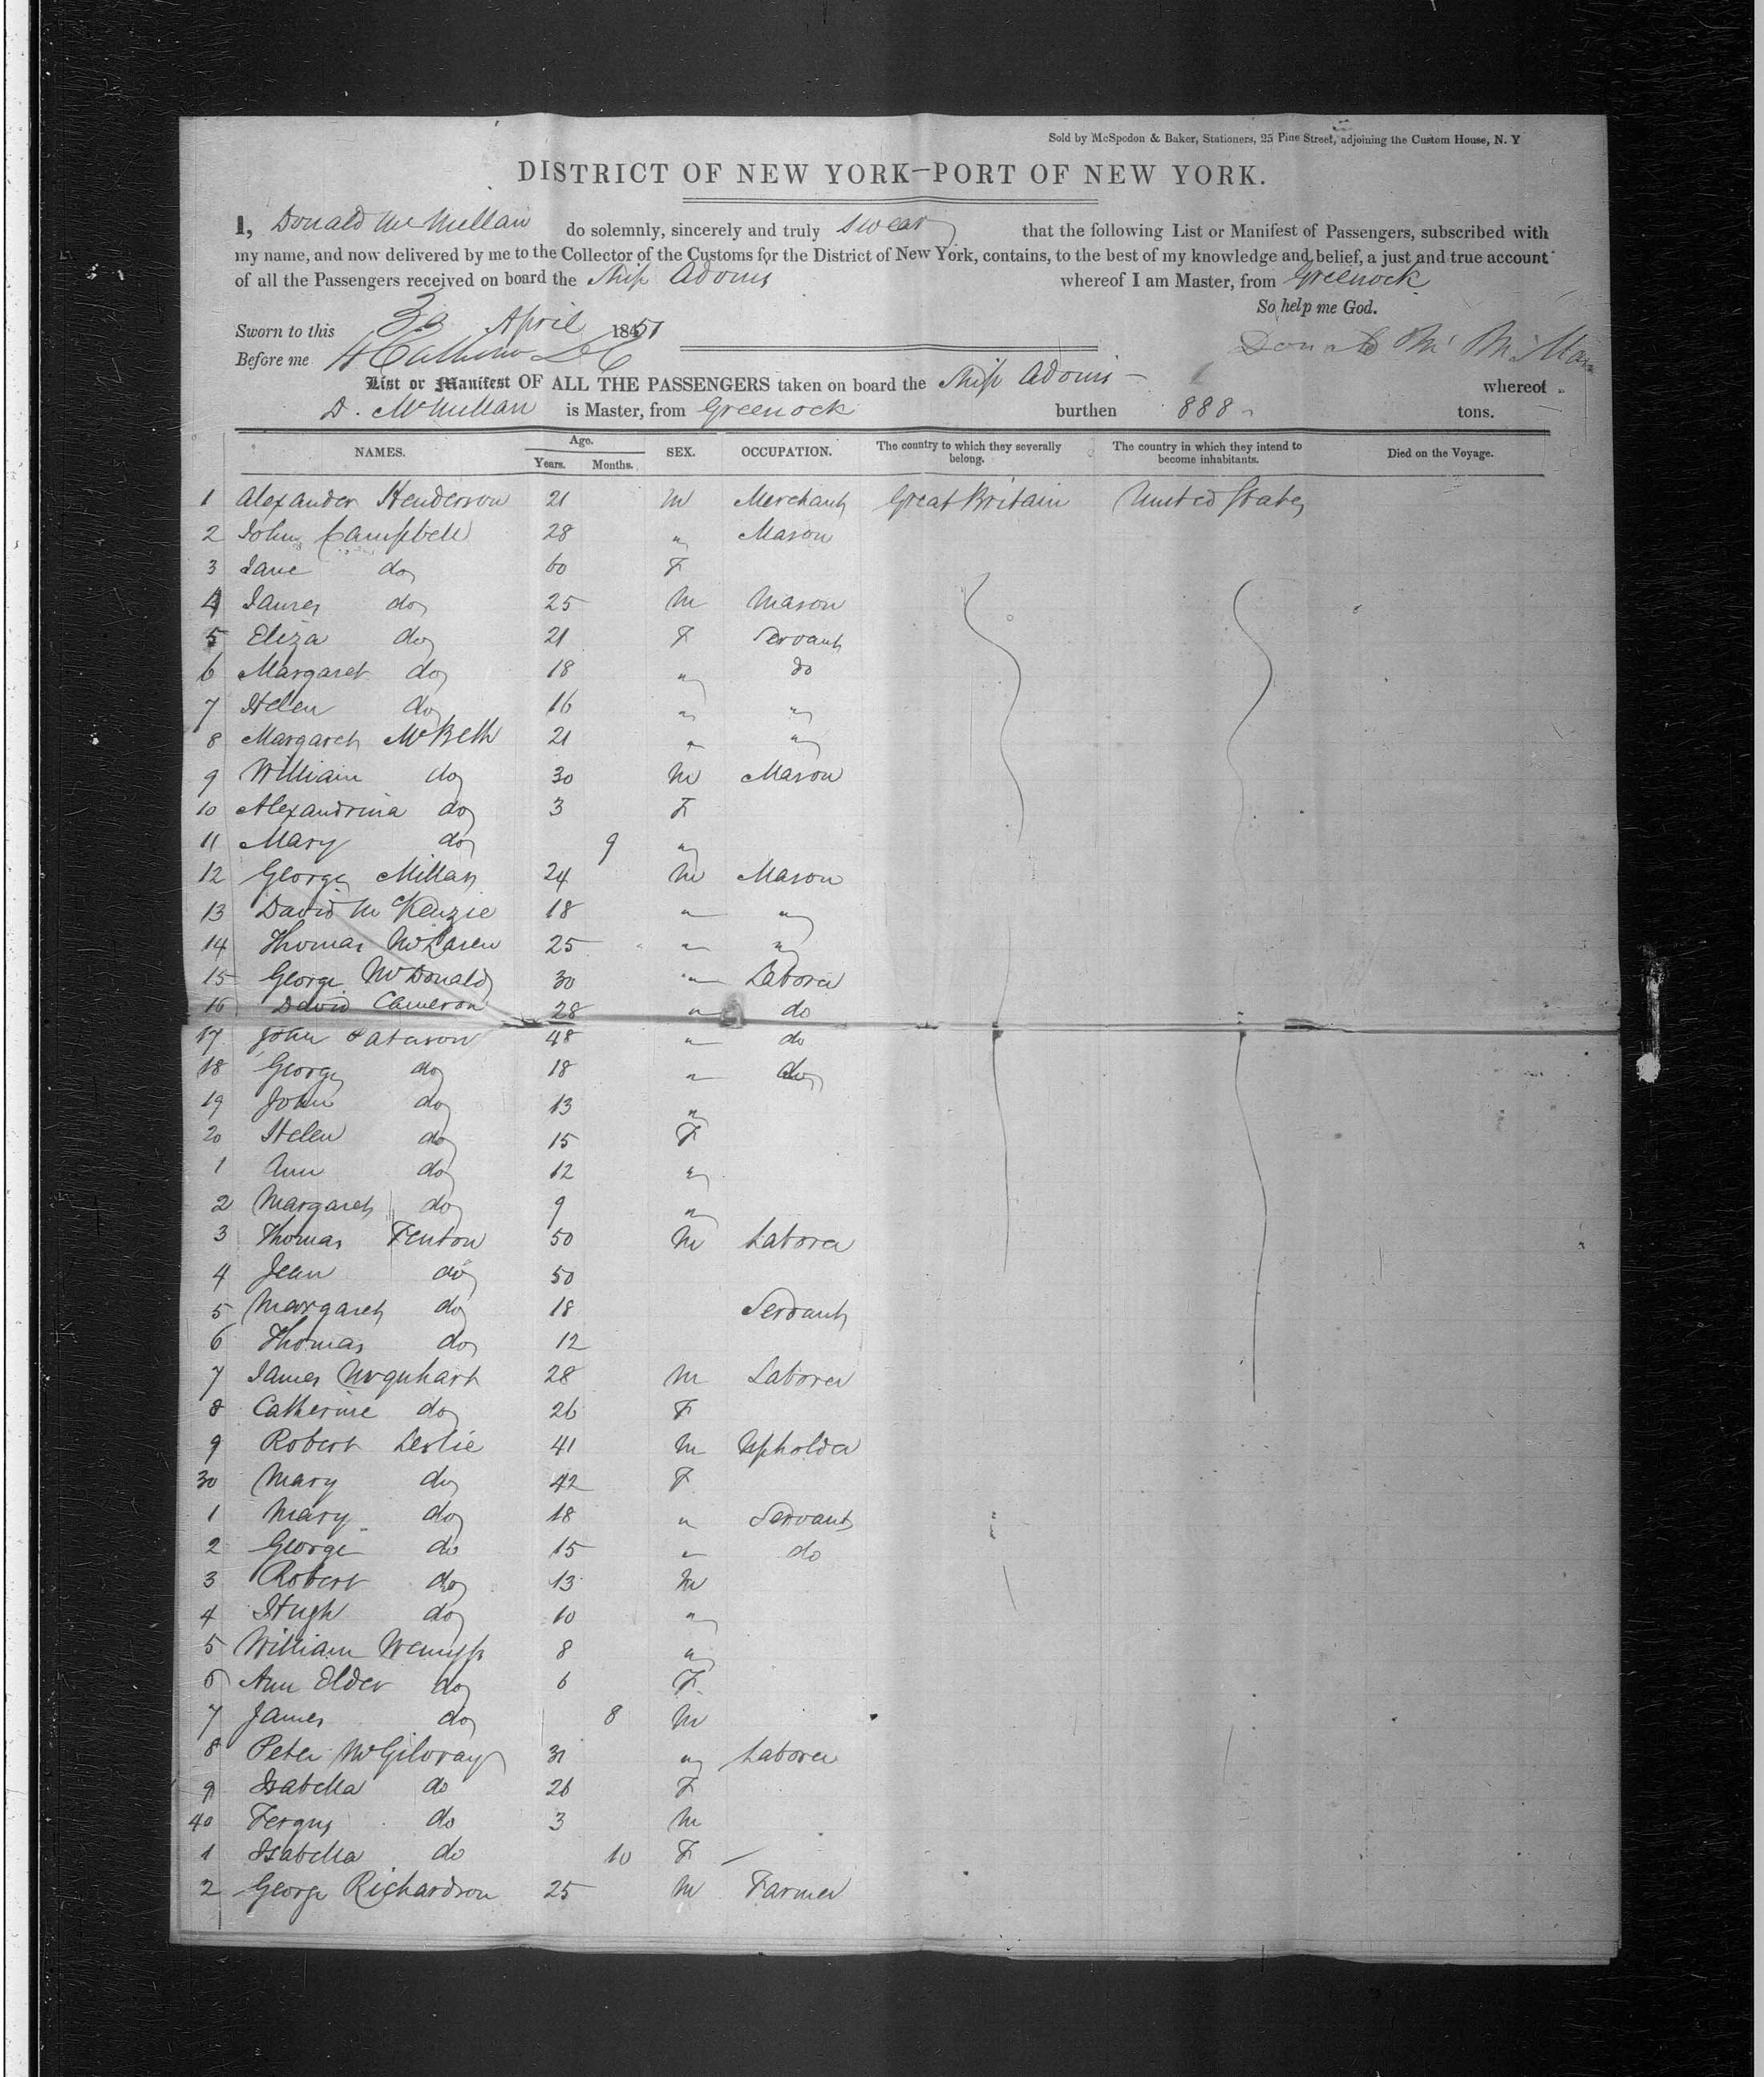 Sold by McSpedon & Baker, Stationers, 25 Pine Street, adjoining the Custom House, N. Y
DISTRICT OF NEW YORK—PORT OF NEW YORK.
I, Donald McMillan do solemnly, sincerely and truly swear that the following List or Manifest of Passengers, subscribed with
my name, and now delivered by me to the Collector of the Customs for the District of New York, contains, to the best of my knowledge and belief, a just and true account
of all the Passengers received on board the Ship Adonis whereof I am Master, from Greenock
So help me God.
Sworn to this April 1851
Before me
Donald McMillan
List or Manifest OF ALL THE PASSENGERS taken on board the Ship Adonis whereof
D. McMillan is Master, from Greenock burthen 888 tons.
NAMES. Age. Years. Months. SEX. OCCUPATION. The country to which they severally belong. The country in which they intend to become inhabitants. Died on the Voyage.
1 Alexander Henderson 21 M Merchant Great Britain United States
2 John Campbell 28 " Mason
3 Jane do 60 F
4 James do 25 M Mason
5 Eliza do 21 F Servant
6 Margaret do 18 " do
7 Helen do 16 " "
8 Margaret McBeth 21 " "
9 William do 30 M Mason
10 Alexandrina do 3 F
11 Mary do 9 "
12 George Millar 24 M Mason
13 David McKenzie 18 " "
14 Thomas McLaren 25 " "
15 George McDonald 30 " Laborer
16 David Cameron 28 " do
17 John Paterson 48 " do
18 George do 18 " do
19 John do 13 "
20 Helen do 15 F
1 Ann do 12 "
2 Margaret do 9 "
3 Thomas Fenton 50 M Laborer
4 Jean do 50
5 Margaret do 18 Servant
6 Thomas do 12
7 James Urquhart 28 M Laborer
8 Catherine do 26 F
9 Robert Leslie 41 M Upholder
30 Mary do 42 F
1 Mary do 18 " Servant
2 George do 15 " do
3 Robert do 13 M
4 Hugh do 10 "
5 William Wemyss 8 "
6 Ann Elder do 6 F
7 James do 8 M
8 Peter McGilvray 31 " Laborer
9 Isabella do 26 F
40 Fergus do 3 M
1 Isabella do 10 F
2 George Richardson 25 M Farmer